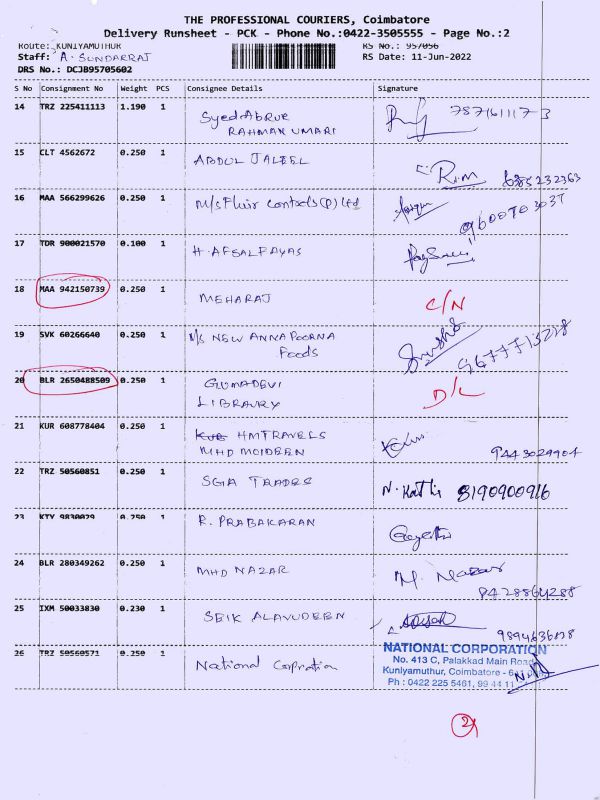 THE PROFESSIONAL COURIERS, Coimbatore
Delivery Runsheet - PCK - Phone No.:0422-3505555 - Page No.:2
Route: KUNIYAMUTHUR RS No.: 957056
Staff: A. SUNDARRAJ RS Date: 11-Jun-2022
DRS No.: DCJB95705602
S No Consignment No Weight PCS Consignee Details Signature
14 TRZ 225411113 1.190 1 Syed Abrur
RAHMAN UMARI
15 CLT 4562672 0.250 1 ABDUL JALEEL
16 MAA 566299626 0.250 1 M/s Fluir Controls (P) Ltd
9600703037
17 TDR 900021570 0.100 1 H. AFSAL FAYAS
18 MAA 942150739 0.250 1 MEHARAJ C/N
19 SVK 60266640 0.250 1 M/s NEW ANNAPOORNA
Foods
20 BLR 2650488509 0.250 1 GUMADEVI D/L
LIBRAURY
21 KUR 608778404 0.250 1 KUR HMTRAVELS
MHD MOIDEEN 9443029904
22 TRZ 50560851 0.250 1 SGA TRADES N. Kathi 8190900916
23 KTY 9830029 0.250 1 R. PRABAKARAN
24 BLR 280349262 0.250 1 MHD NAZAR M. Nazar
9428864288
25 IXM 50033830 0.230 1 SEIK ALAVUDEEN
26 TRZ 50560571 0.250 1 National Corpration
NATIONAL CORPORATION
No. 413 C, Palakkad Main Road
Kuniyamuthur, Coimbatore - 
Ph : 0422 225 5461, 99 44 11
2